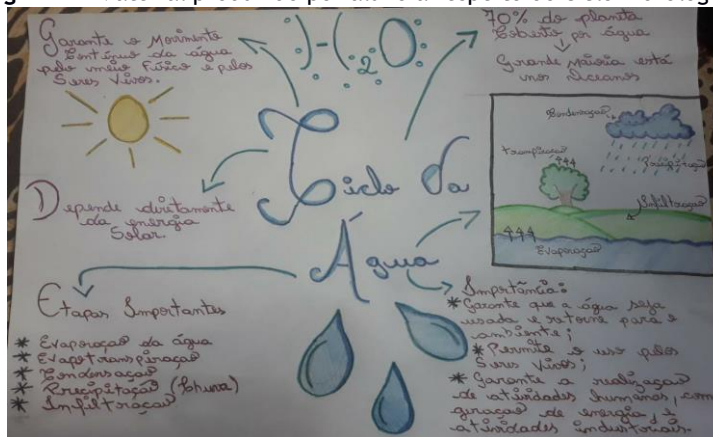 Garante o Movimento
Contínuo da água
pelo meio Físico e pelos
Seres Vivos.
H2O
70% do planeta
Coberto por água
Grande Maioria está
nos Oceanos
Condensação
transpiração
Precipitação
Infiltração
Evaporação
Ciclo da
Água
Depende diretamente
da energia
Solar.
Etapas Importantes
* Evaporação da água
* Evapotranspiração
* Condensação
* Precipitação (Chuva)
* Infiltração
Importância:
* Garante que a água seja
usada e retorne para o
ambiente;
* Permite o uso pelos
Seres Vivos;
* Garante a realização
de atividades humanas, como
geração de energia, e
atividades industriais.